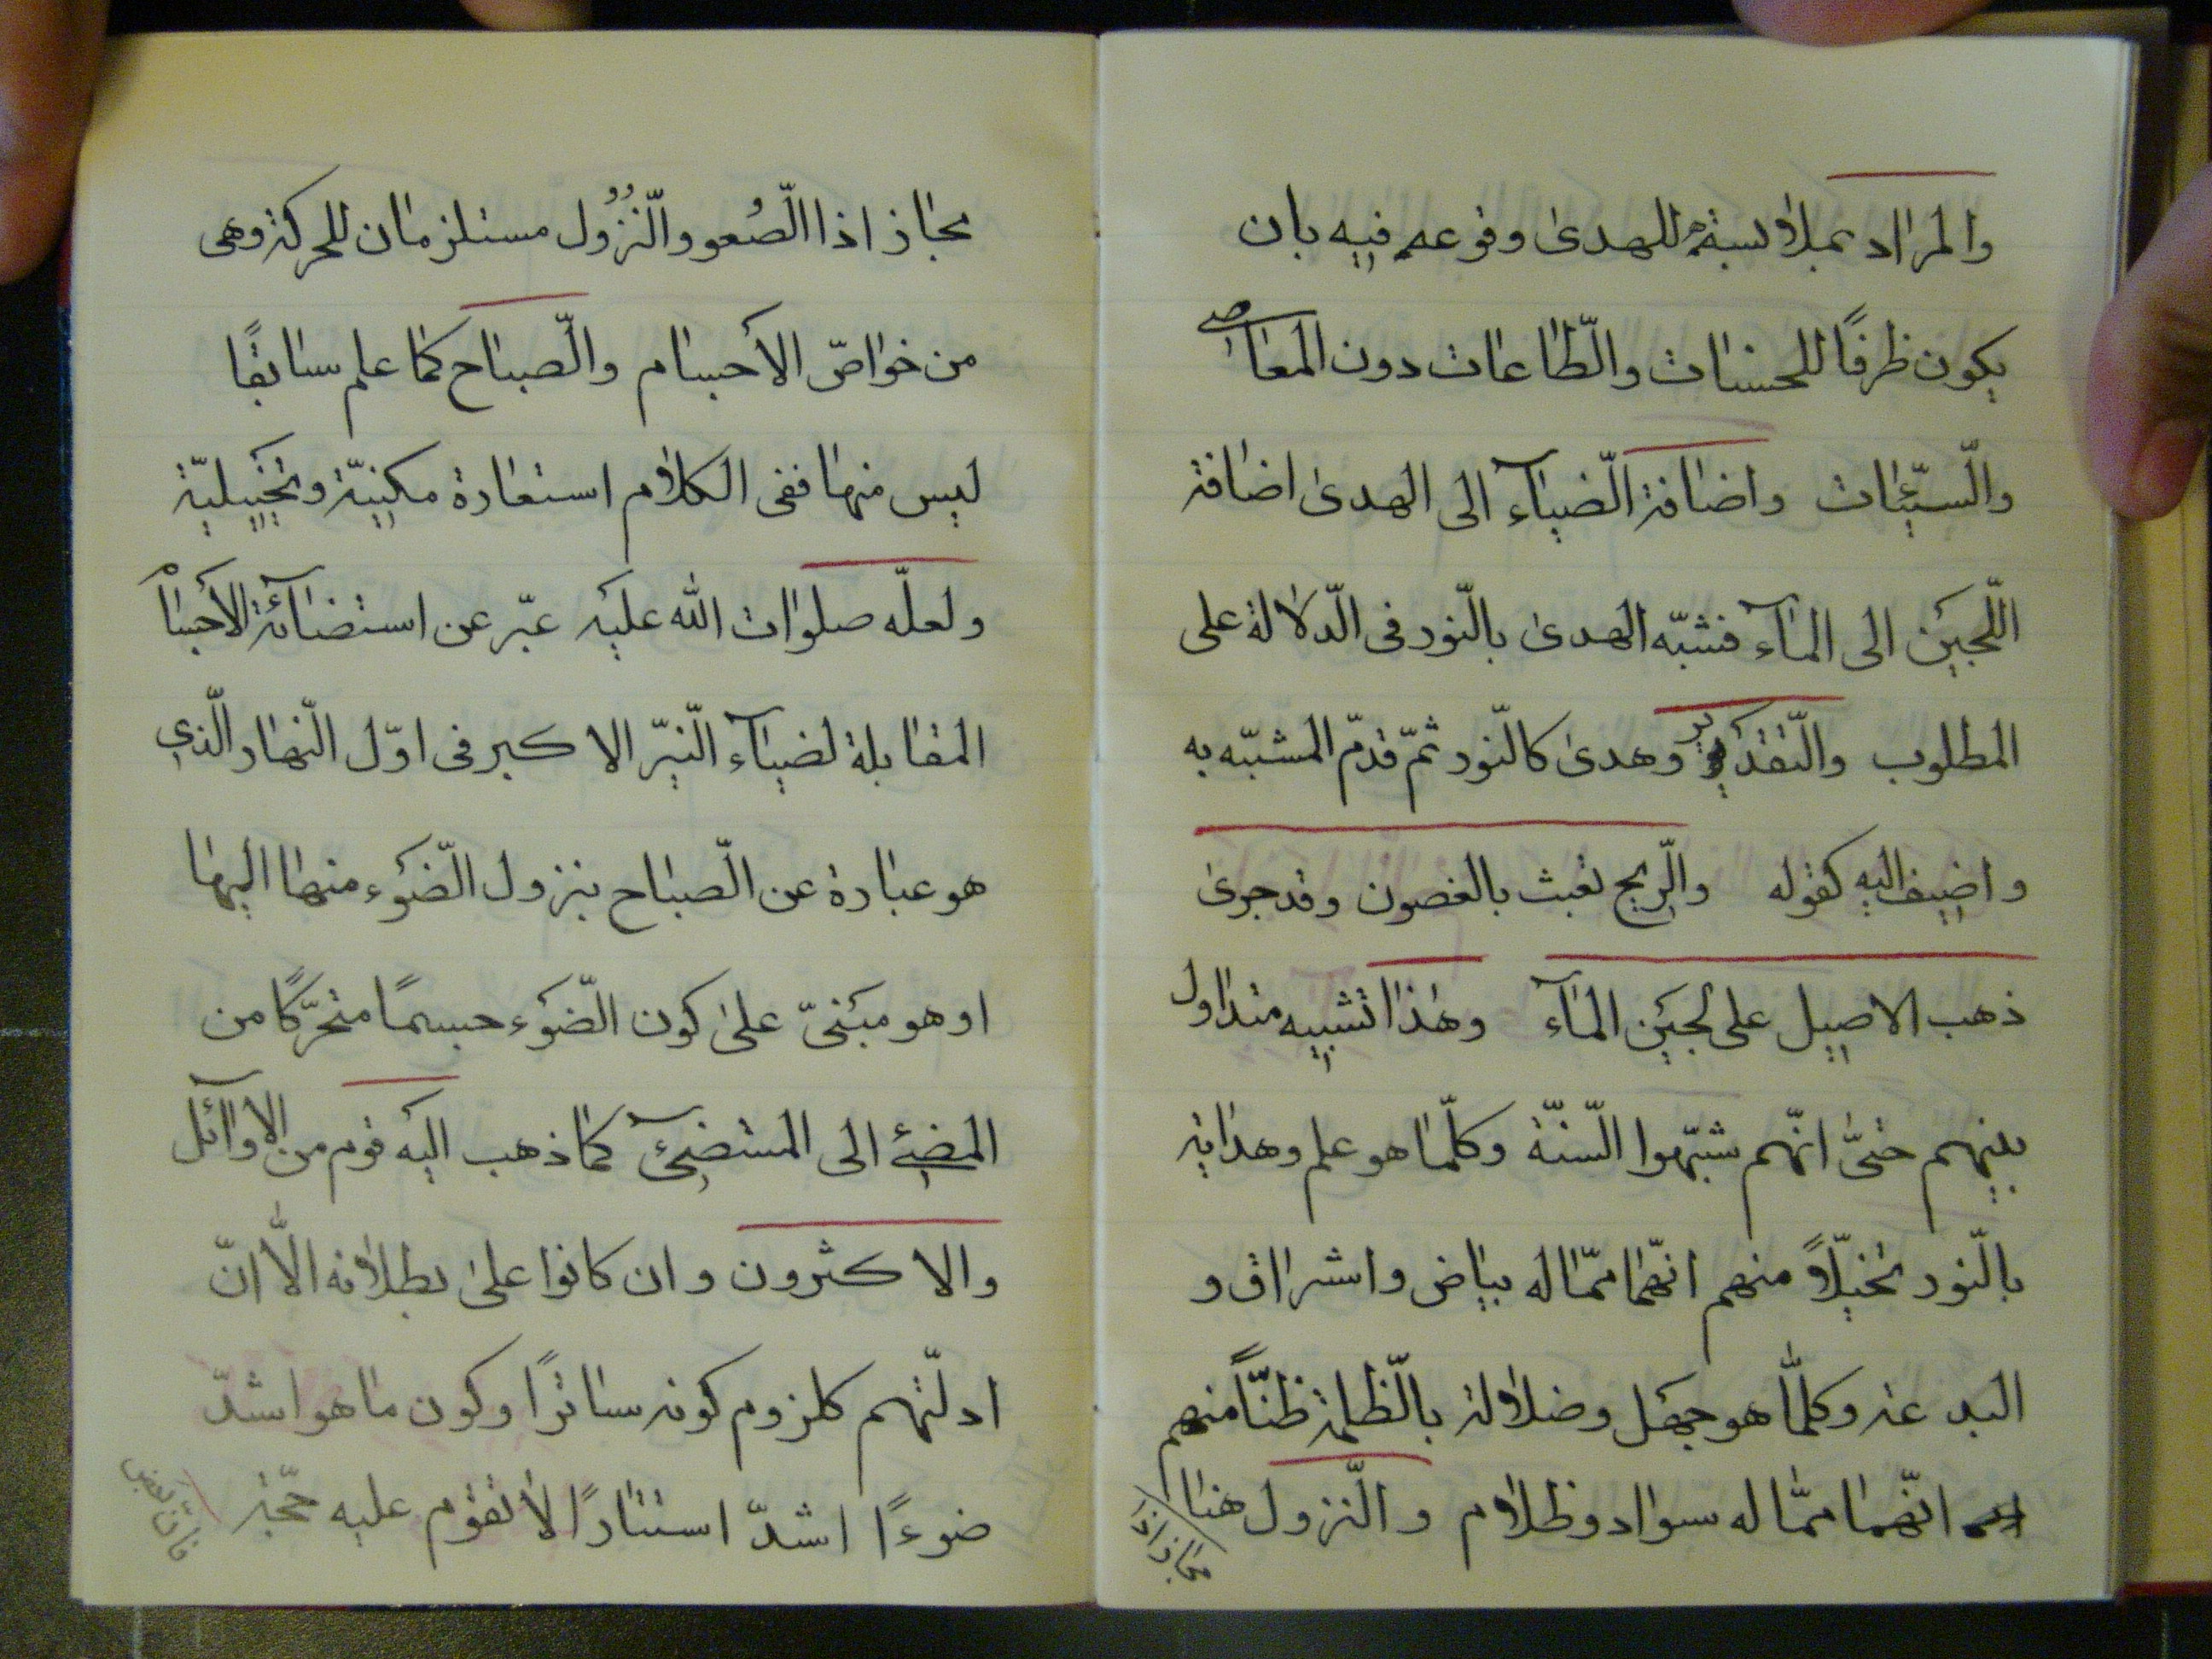 والمراد بملابسته للهدى وقوعه فيه بان
يكون ظرفًا للحسنات والطّاعات دون المعاصى
والسّيّئات واضافة الضّياء الى الهدى اضافة
اللّجين الى الماء فشبّه الهدى بالنّور فى الدّلالة على
المطلوب والتّقدير وهدى كالنّور ثمّ قدّم المشبّه به
واضيف اليه كقوله والرّيح تعبث بالغصون وقد جرى
ذهب الاصيل على لجين الماء وهذا تشبيه متداول
بينهم حتىّ انّهم شبّهوا السّنّة وكلّما هو علم وهداية
بالنّور تخيّلاً منهم انّهما ممّا له بياض واشراق و
البد عة وكلّما هو جهل وضلالة بالظّلمة ظنّاً منهم
انّهما ممّا له سواد وظلام والنّزول هنا
مجاز اذا
مجاز اذا الصّعو والنّزُول مستلزمان للحركة وهى
من خواصّ الأجسام والصّباح كما علم سابقًا
ليس منها ففى الكلام استعارة مكنيّة وتخييليّة
ولعلّه صلوات الله عليه عبّر عن استضائة الأجسام
المقابلة لضياء النّيّر الاكبر فى اوّل النّهار الّذي
هو عبارة عن الصّباح بنزول الضّوء منها اليها
او هو مبنىّ على كون الضّوء جسمًا متحرّكًا من
المضئ الى المستضئ كما ذهب اليه قوم من الاوائل
والاكثرون وان كانوا على بطلانه الاّ انّ
ادلّتهم كلزوم كونه ساترًا وكون ما هو اشدّ
ضوءًا اشدّ استتارًا لا تقوم عليه حجّة
فانّ بعض